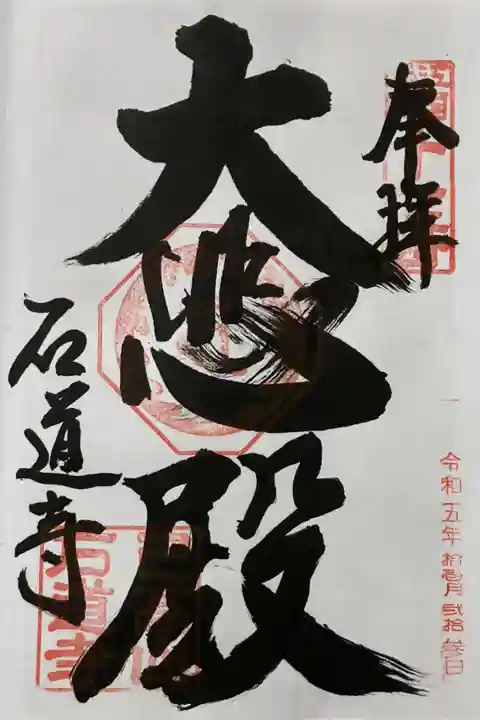 奉拝
令和五年拾壱月弐拾参日
大悲殿
石道寺